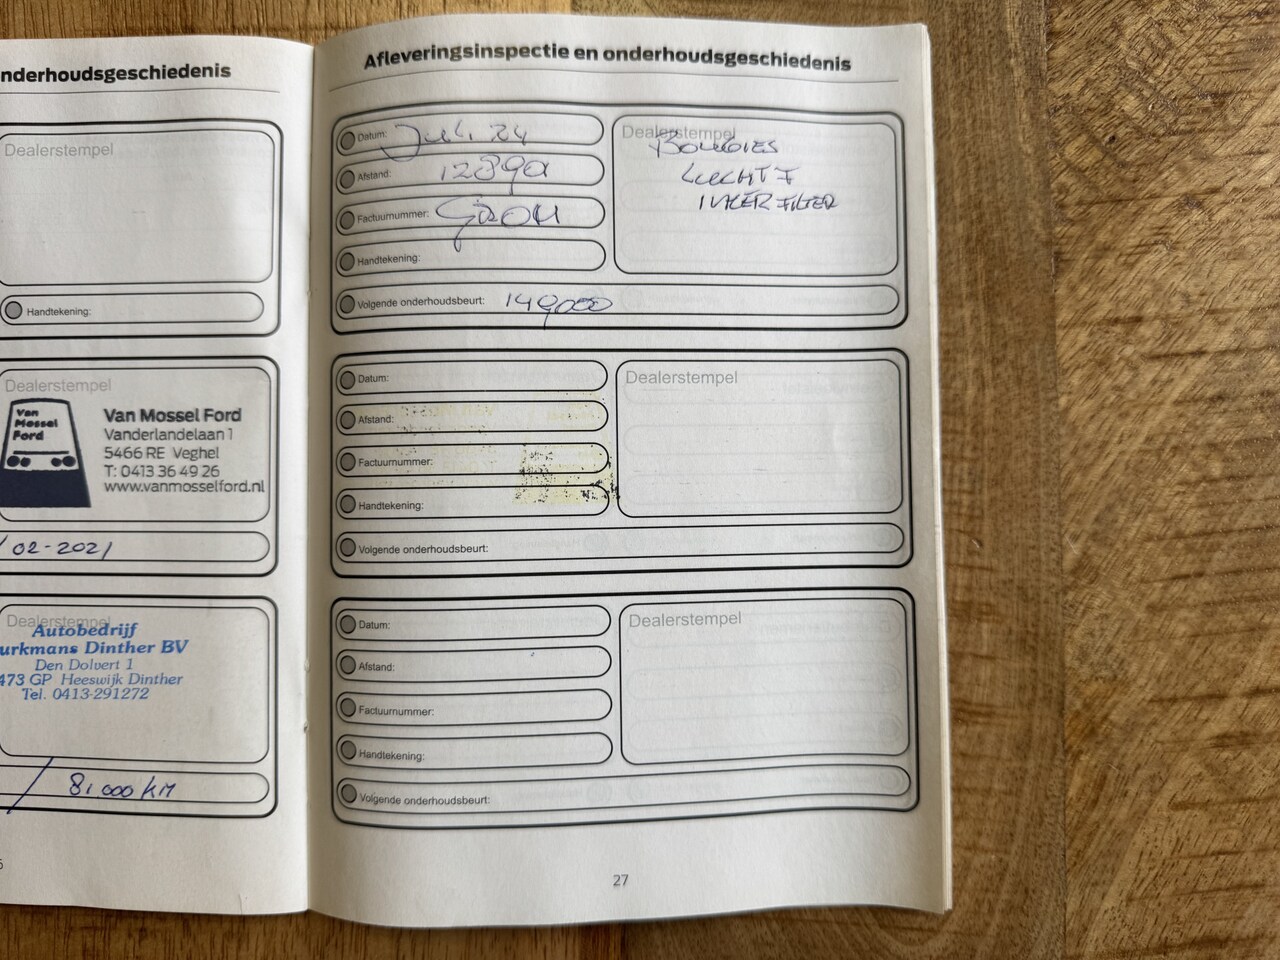 nderhoudsgeschiedenis
Dealerstempel
Handtekening:
Dealerstempel
Van
Mossel
Ford
Van Mossel Ford
Vanderlandelaan 1
5466 RE Veghel
T: 0413 36 49 26
www.vanmosselford.nl
/02-2021
Dealerstempel
Autobedrijf
urkmans Dinther BV
Den Dolvert 1
473 GP Heeswijk Dinther
Tel. 0413-291272
/ 81.000 KM
Afleveringsinspectie en onderhoudsgeschiedenis
Datum: Juli 24
Afstand:
Factuurnummer:
Handtekening:
Volgende onderhoudsbeurt: 149000
Dealerstempel
BOUGIES
LUCHT F
FILTER
Datum:
Afstand:
Factuurnummer:
Handtekening:
Volgende onderhoudsbeurt:
Dealerstempel
Datum:
Afstand:
Factuurnummer:
Handtekening:
Volgende onderhoudsbeurt:
Dealerstempel
27